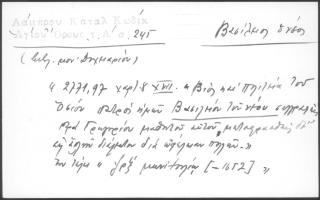 Λάμπρου Καταλ Κωδίκ
Αγίου Ὄρους τ, Α' σ, 245
Βασίλειος ὁ νέος
(βιβλ. μον. Δοχειαρίου)
"2771,97 χαρτ 8 XVII. "Βίος καὶ πολιτεία τοῦ
Ὁσίου πατρὸς ἡμῶν Βασιλείου τοῦ νέου συγγραφεὶς
παρὰ Γρηγορίου μαθητοῦ αὐτοῦ, μεταφρασθεὶς
εἰς ἁπλῆν διάλεκτον διὰ ὠφέλειαν πολλῶν."
ἐν τέλει "͵αχξ [-1652]"